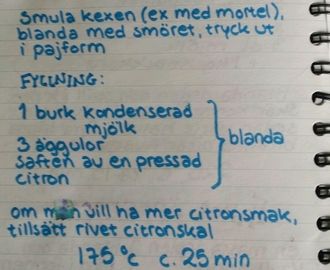 Smula kexen (ex med mortel),
blanda med smöret, tryck ut
i pajform
FYLLNING:
1 burk kondenserad
mjölk
3 äggulor
saften av en pressad
citron
blanda
om man vill ha mer citronsmak,
tillsätt rivet citronskal
175 °C c. 25 min